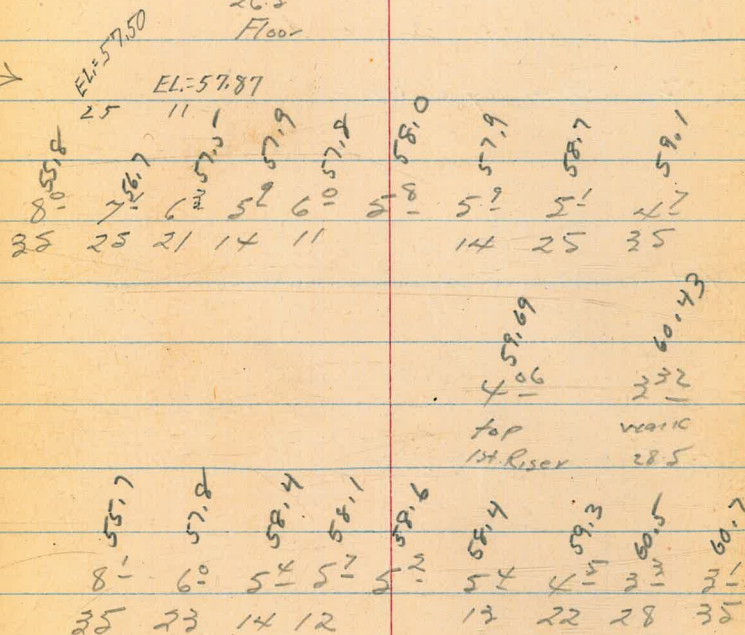 Floor
EL.=57.50 EL.=57.87
25 11
55.8 56.7 57.5 57.9 57.8 58.0 57.9 58.7 59.1
8⁰ 7² 6³ 5⁹ 6⁰ 5⁸ 5⁹ 5¹ 4⁷
35 25 21 14 11 14 25 35
59.69 60.43
4⁰⁶ 3³²
top walk
1st Riser 28.5
55.7 57.8 58.4 58.1 58.6 58.4 59.3 60.5 60.7
8¹ 6⁰ 5⁴ 5⁷ 5² 5⁴ 4⁵ 3³ 3¹
35 23 14 12 13 22 28 35